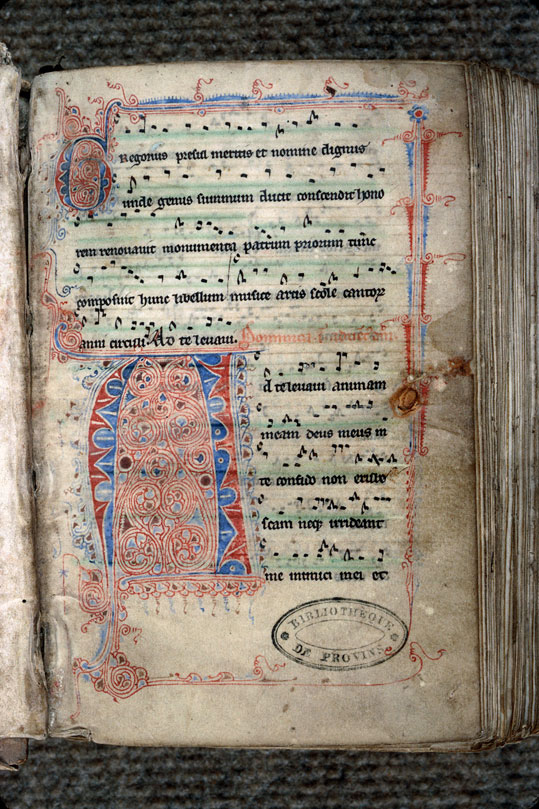 Gregorius presul meritis et nomine dignus
unde genus summum ducit conscendit hono
rem renovavit monumenta patrum priorum tunc
composuit hunc libellum musice artis scole cantor
anni circuli. Ad te levavi. Dominica
Ad te levavi animam
meam deus meus in
te confido non erube
scam neqꝫ irrideant
me inimici mei et
BIBLIOTHEQUE
DE PROVINS